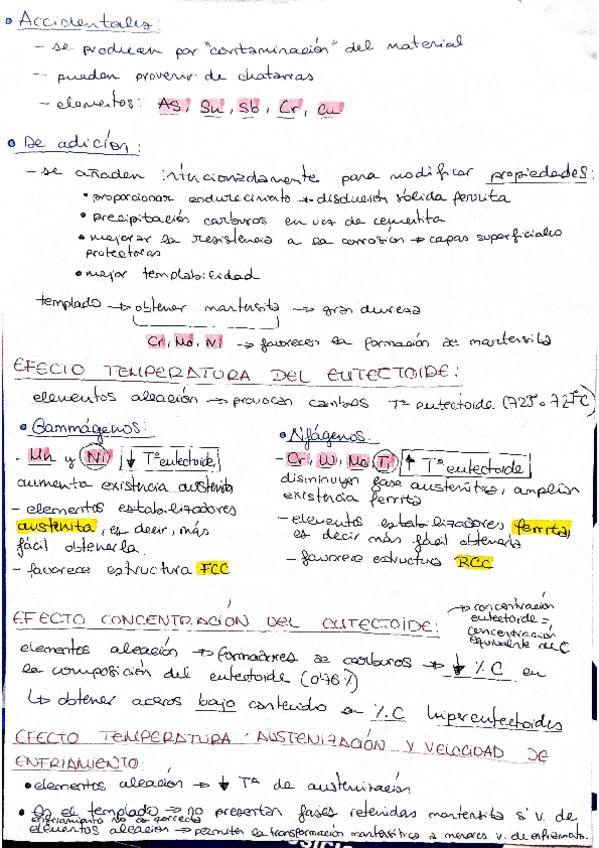 • Accidentales:
- se producen por "contaminación" del material
- pueden provenir de chatarras
- elementos: As, Sn, Sb, Cr, Cu
• De adición:
- se añaden intencionadamente para modificar propiedades:
• proporcionar endurecimiento → disolución sólida ferrita
• precipitación carburos en vez de cementita
• mejorar la resistencia a la corrosión → capas superficiales
protectoras
• mejor templabilidad
templado → obtener martensita → gran dureza
Cr, Mo, Ni → favorecen la formación de martensita
EFECTO TEMPERATURA DEL EUTECTOIDE:
elementos aleación → provocan cambios Tª eutectoide (725º o 727ºC)
• Gammágenos:
- Mn y Ni ↓ Tª eutectoide,
aumenta existencia austenita
- elementos estabilizadores
austenita, es decir, más
fácil obtenerla.
- favorece estructura FCC
• Alfágenos.
- Cr, W, Mo, Ti ↑ Tª eutectoide
disminuyen fase austenítica, amplían
existencia ferrita
- elementos estabilizadores ferrita,
es decir más fácil obtenerla
- favorece estructura BCC
EFECTO CONCENTRACIÓN DEL EUTECTOIDE:
→ concentración
eutectoide =
concentración
equivalente de C
elementos aleación → formadores de carburos → ↓ %C en
la composición del eutectoide (0'76%)
↳ obtener aceros bajo contenido en %C hipereutectoides
EFECTO TEMPERATURA AUSTENIZACIÓN Y VELOCIDAD DE
ENFRIAMIENTO:
• elementos aleación → ↓ Tª de austenización
• En el templado → no presentan fases retenidas martensita si v. de
enfriamiento no es correcta
elementos aleación → permiten la transformación martensítica a menores v. de enfriamiento.